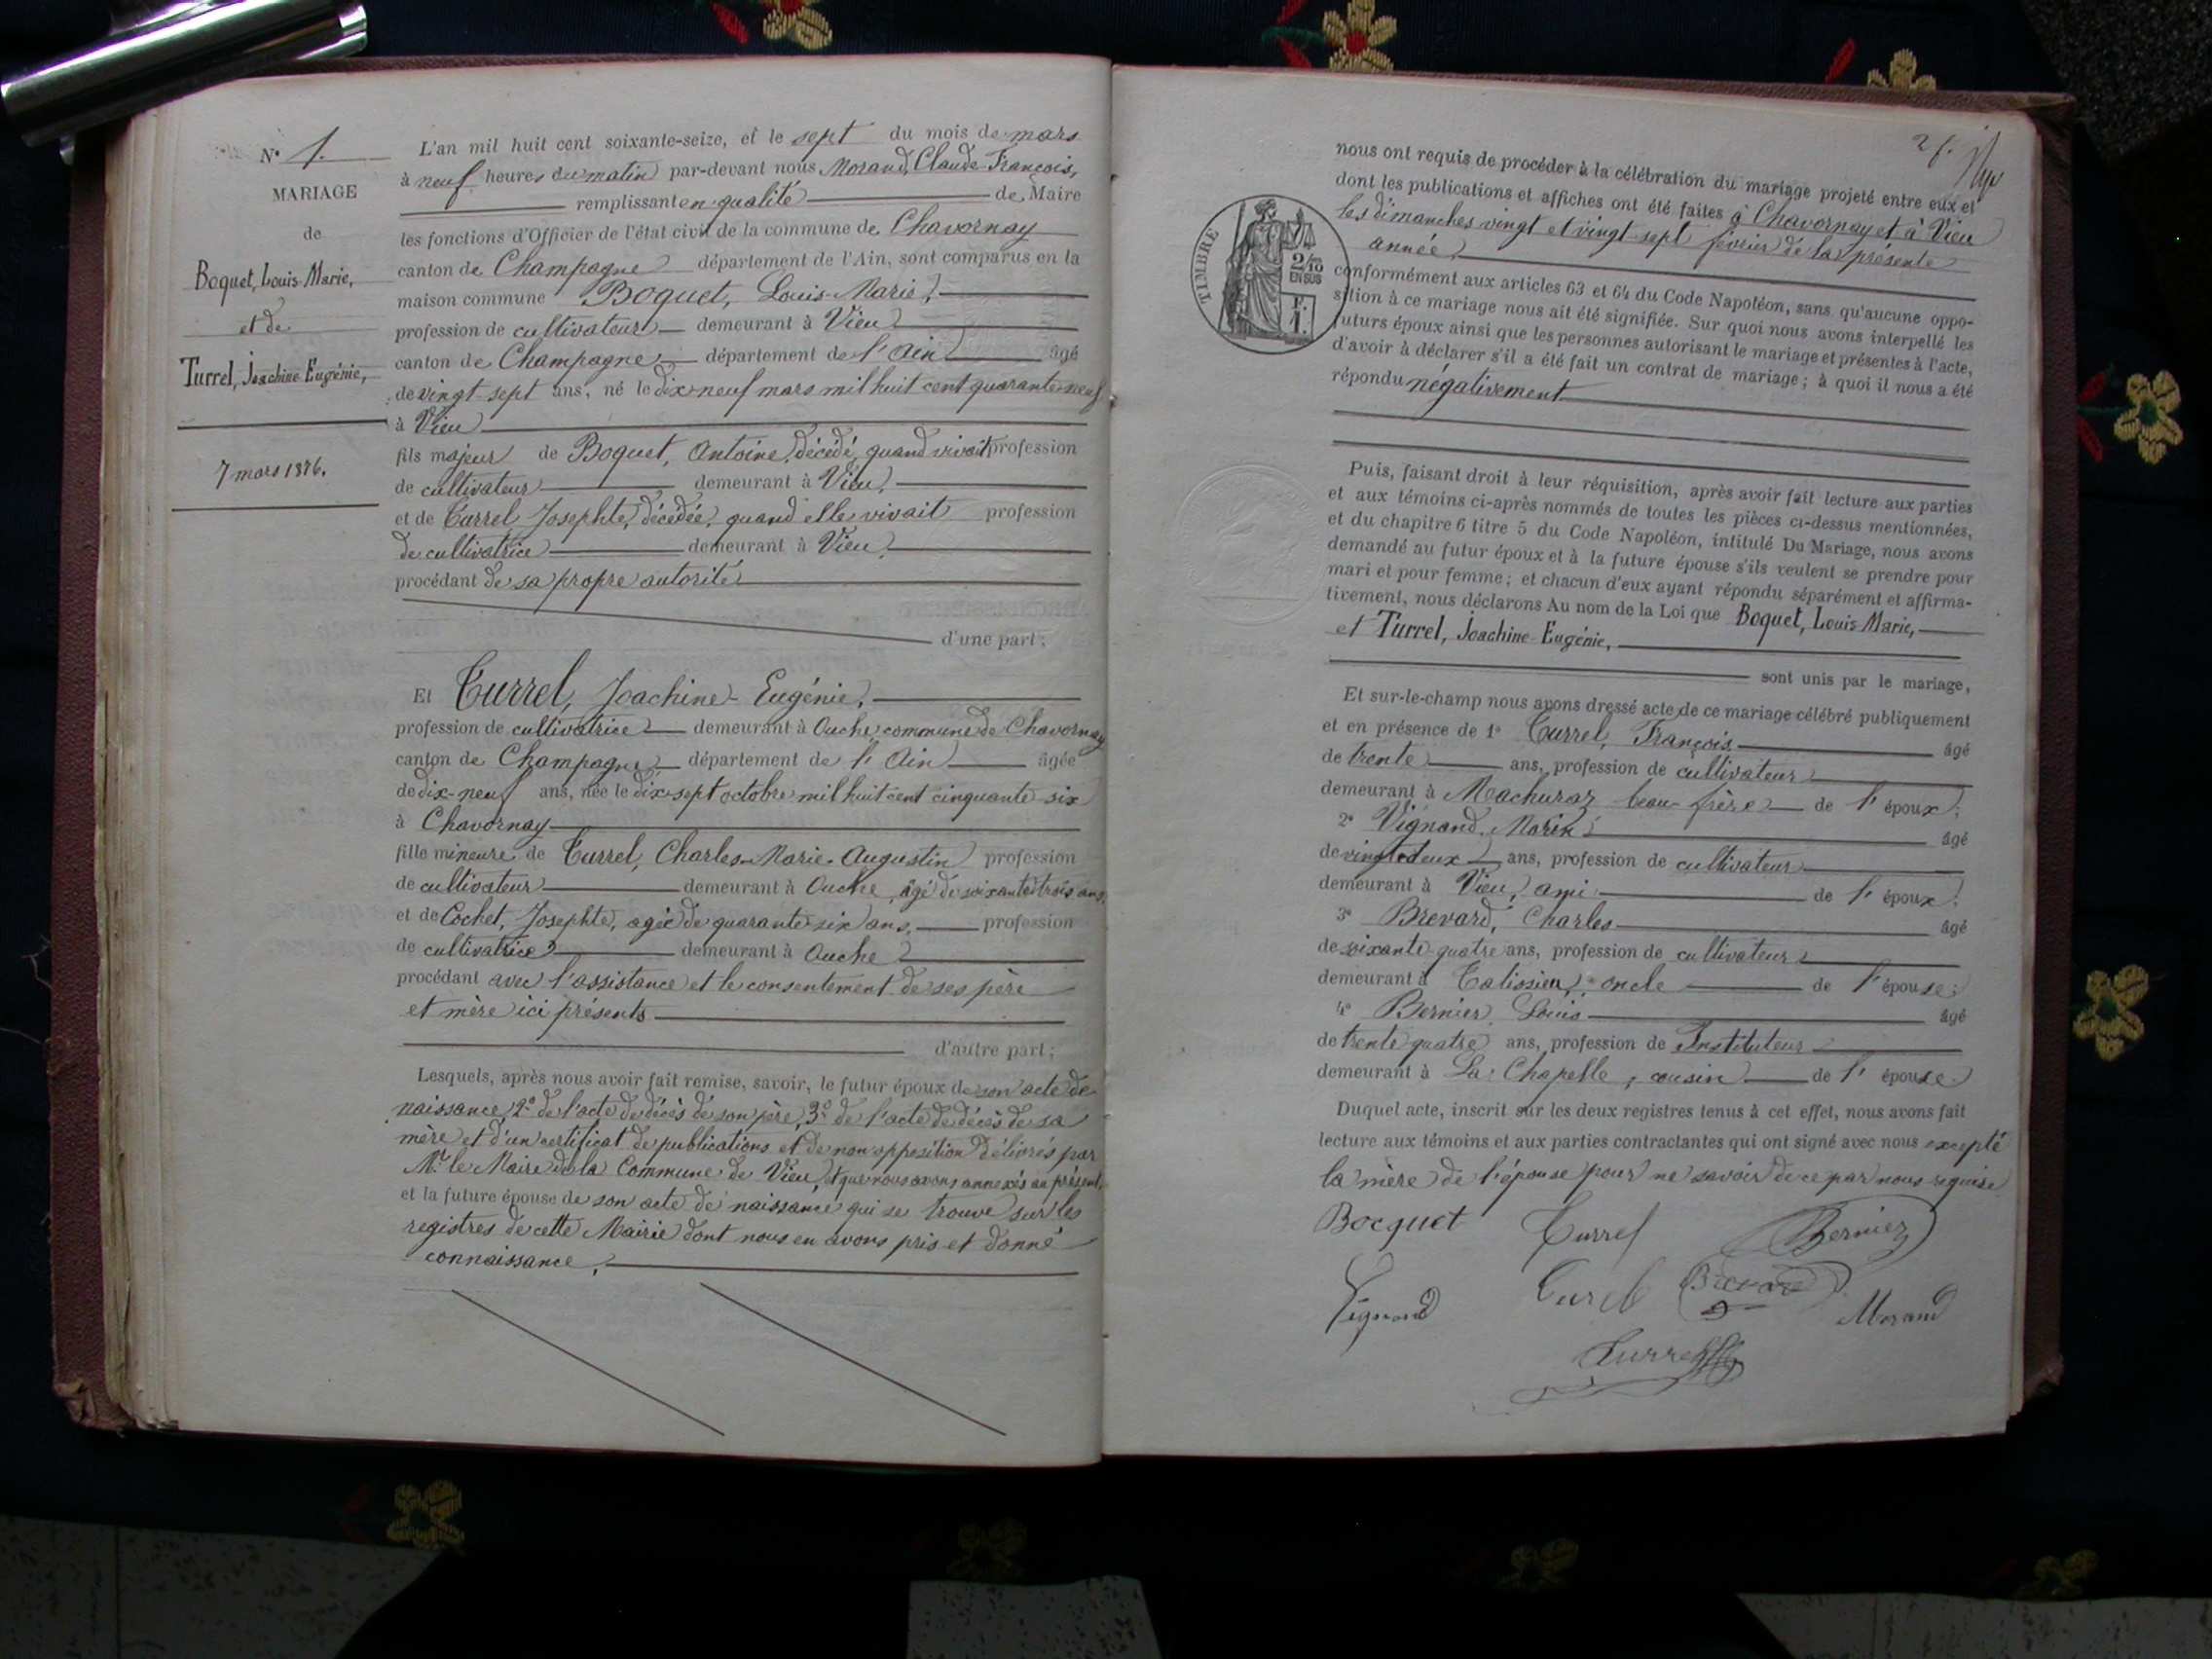 N° 1.
MARIAGE
de
Boquet, Louis-Marie,
et de
Turrel, Joachine Eugénie,
7 mars 1876.
L'an mil huit cent soixante-seize, et le sept du mois de mars
à neuf heures du matin par-devant nous Morand, Claude-François,
remplissant en qualité de Maire
les fonctions d'Officier de l'état civil de la commune de Chavornay
canton de Champagne département de l'Ain, sont comparus en la
maison commune Boquet, Louis-Marie,
profession de cultivateur demeurant à Vieu
canton de Champagne département de l'Ain âgé
de vingt-sept ans, né le dix neuf mars mil huit cent quarante neuf
à Vieu
fils majeur de Boquet, Antoine, décédé, quand vivait profession
de cultivateur demeurant à Vieu,
et de Turrel Josephte, décédée, quand elle vivait profession
de cultivatrice demeurant à Vieu,
procédant de sa propre autorité
d'une part;
Et Turrel, Joachine-Eugénie,
profession de cultivatrice demeurant à Ouche, commune de Chavornay
canton de Champagne département de l'Ain âgée
de dix-neuf ans, née le dix-sept octobre mil huit cent cinquante six
à Chavornay
fille mineure de Turrel, Charles-Marie-Augustin profession
de cultivateur demeurant à Ouche, âgé de soixante trois ans,
et de Cochet, Josephte, agée de quarante six ans, profession
de cultivatrice demeurant à Ouche
procédant avec l'assistance et le consentement de ses père
et mère ici présents
d'autre part;
Lesquels, après nous avoir fait remise, savoir, le futur époux de son acte de
naissance, 2° de l'acte de décès de son père, 3° de l'acte de décès de sa
mère et d'un certificat de publications et de non opposition délivrés par
Mr le Maire de la Commune de Vieu, et que nous avons annexés au présent,
et la future épouse de son acte de naissance qui se trouve sur les
registres de cette Mairie dont nous en avons pris et donné
connaissance,
2f.
TIMBRE
2/10
EN SUS
F.
1.
nous ont requis de procéder à la célébration du mariage projeté entre eux et
dont les publications et affiches ont été faites à Chavornay et à Vieu
les dimanches vingt et vingt-sept février de la présente
année,
conformément aux articles 63 et 64 du Code Napoléon, sans qu'aucune oppo-
sition à ce mariage nous ait été signifiée. Sur quoi nous avons interpellé les
futurs époux ainsi que les personnes autorisant le mariage et présentes à l'acte,
d'avoir à déclarer s'il a été fait un contrat de mariage; à quoi il nous a été
répondu négativement
Puis, faisant droit à leur réquisition, après avoir fait lecture aux parties
et aux témoins ci-après nommés de toutes les pièces ci-dessus mentionnées,
et du chapitre 6 titre 5 du Code Napoléon, intitulé Du Mariage, nous avons
demandé au futur époux et à la future épouse s'ils veulent se prendre pour
mari et pour femme; et chacun d'eux ayant répondu séparément et affirma-
tivement, nous déclarons Au nom de la Loi que Boquet, Louis-Marie,
et Turrel, Joachine-Eugénie,
sont unis par le mariage,
Et sur-le-champ nous avons dressé acte de ce mariage célébré publiquement
et en présence de 1° Turrel, François âgé
de trente ans, profession de cultivateur
demeurant à Machuraz beau-frère de l'époux;
2° Vignand, Marin âgé
de vingt deux ans, profession de cultivateur
demeurant à Vieu, ami de l'époux;
3° Brevard, Charles âgé
de soixante quatre ans, profession de cultivateur
demeurant à Talissieu, oncle de l'épouse;
4° Bernier Louis âgé
de trente quatre ans, profession de Instituteur
demeurant à La Chapelle, cousin de l'épouse.
Duquel acte, inscrit sur les deux registres tenus à cet effet, nous avons fait
lecture aux témoins et aux parties contractantes qui ont signé avec nous excepté
la mère de l'épouse pour ne savoir de ce par nous requise
Bocquet Turrel Bernier
Vignand Turel Brevard Morand
Turrel